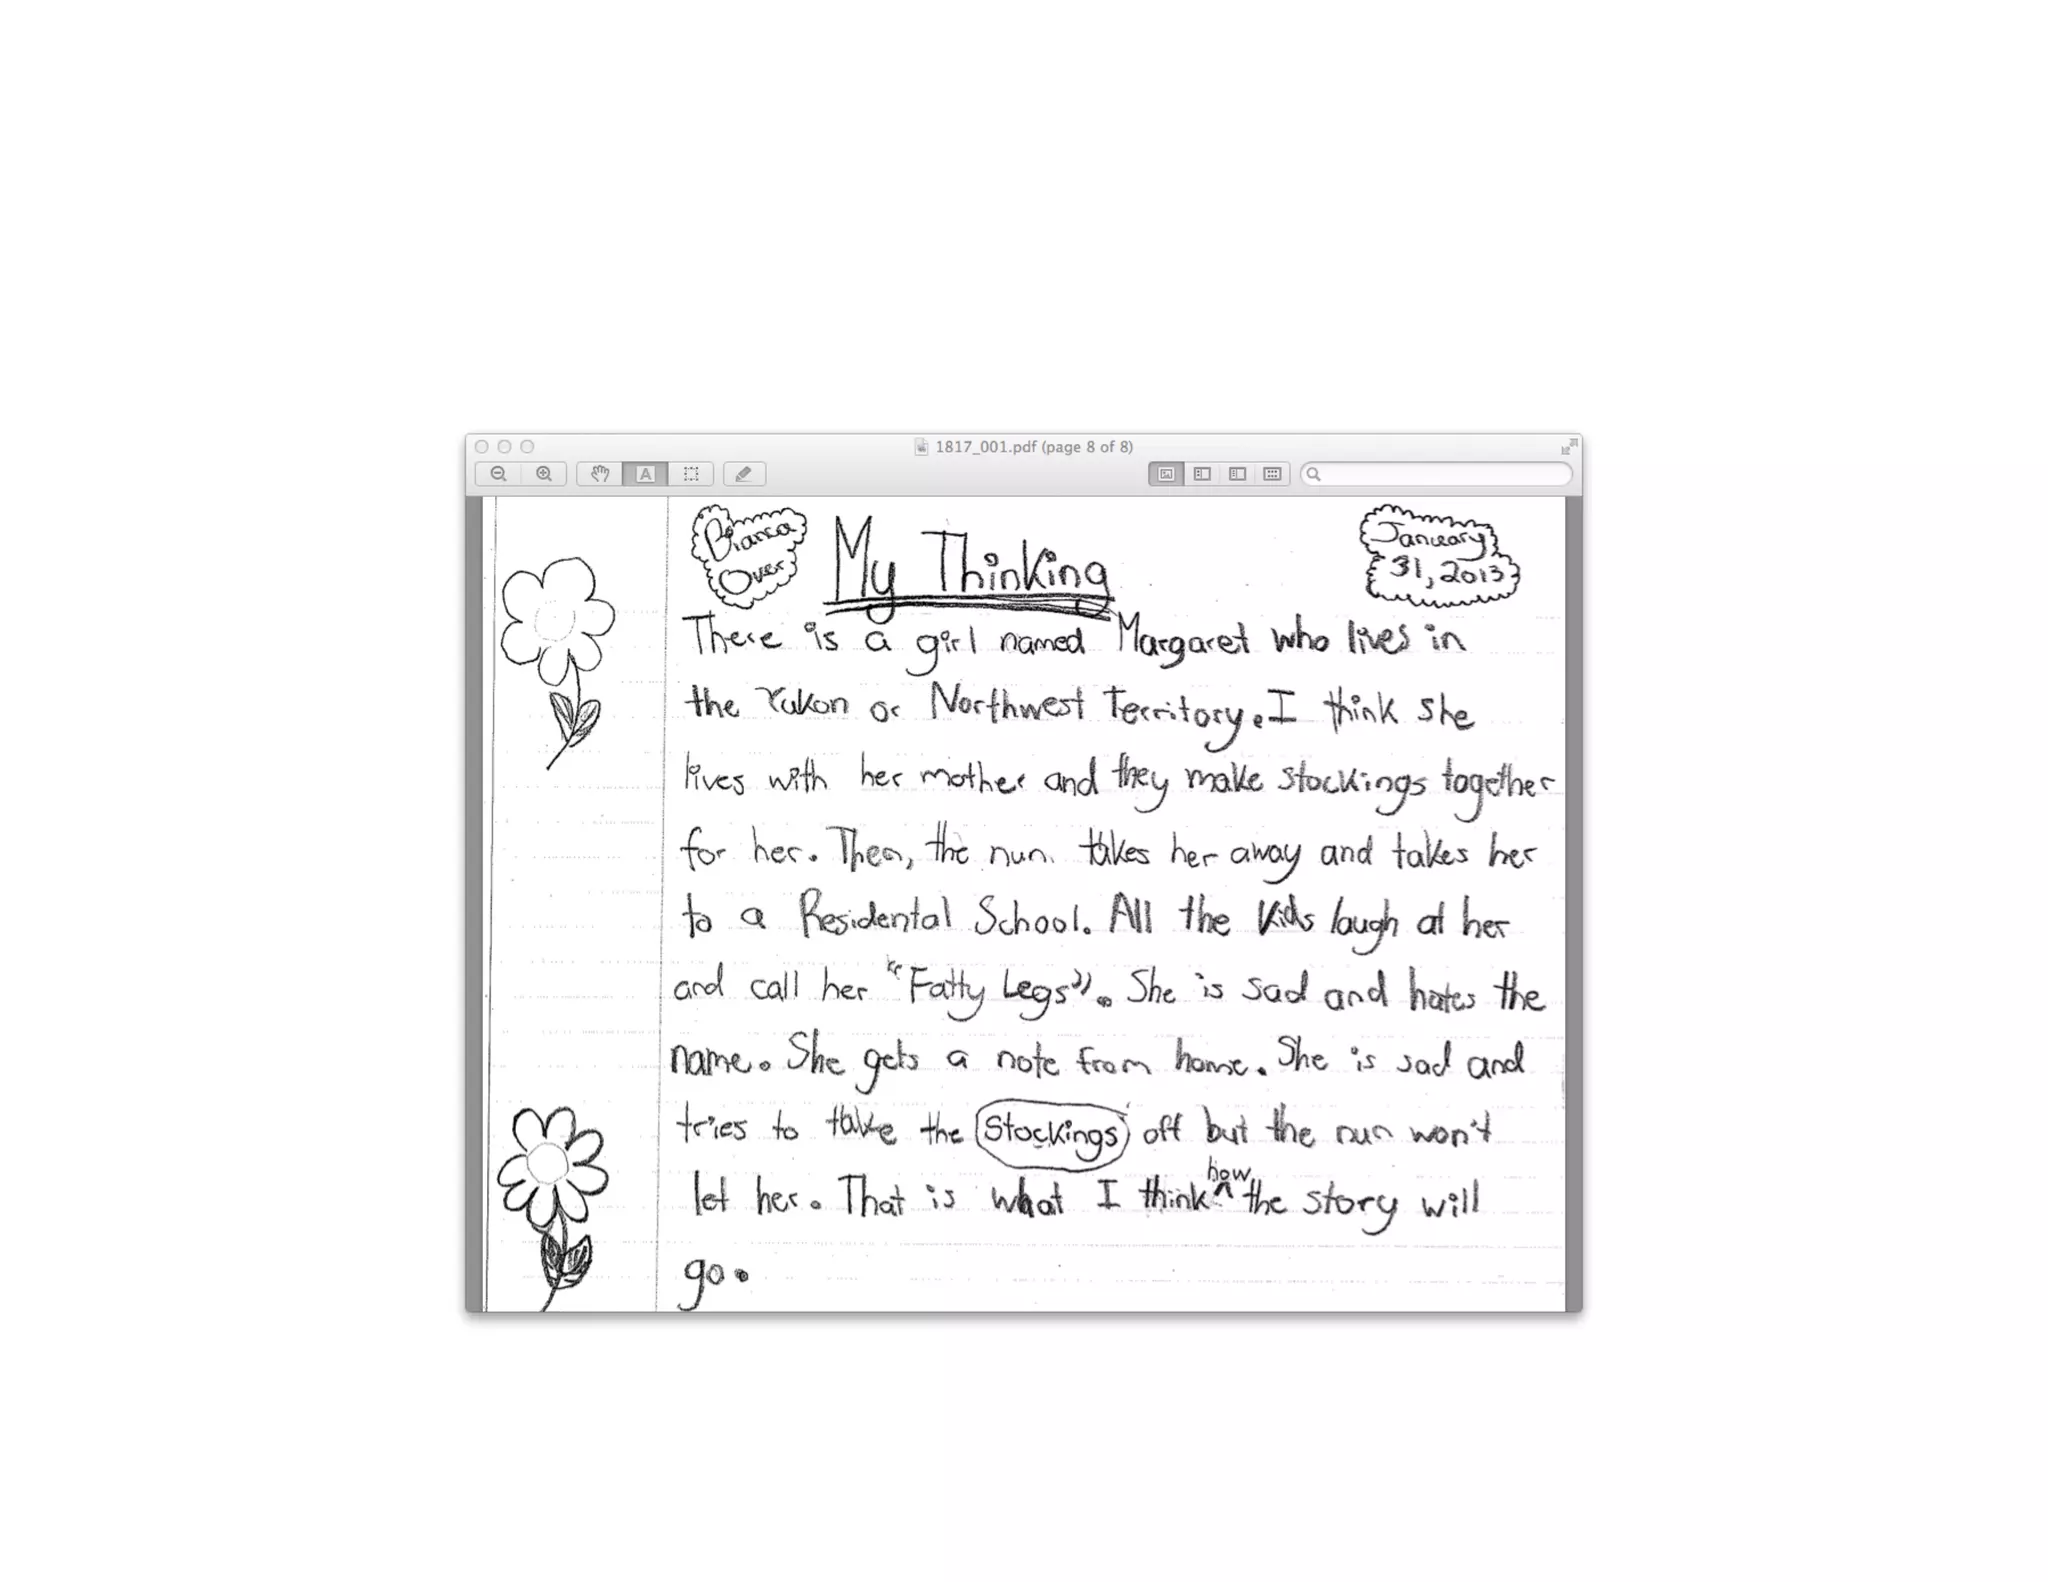 1817_001.pdf (page 8 of 8)
A
Bianca
Over
My Thinking
January
31, 2013
There is a girl named Margaret who lives in
the Yukon or Northwest Territory. I think she
lives with her mother and they make stockings together
for her. Then, the nun takes her away and takes her
to a Residental School. All the kids laugh at her
and call her "Fatty Legs". She is sad and hates the
name. She gets a note from home. She is sad and
tries to take the stockings off but the nun won't
let her. That is what I think how the story will
go.